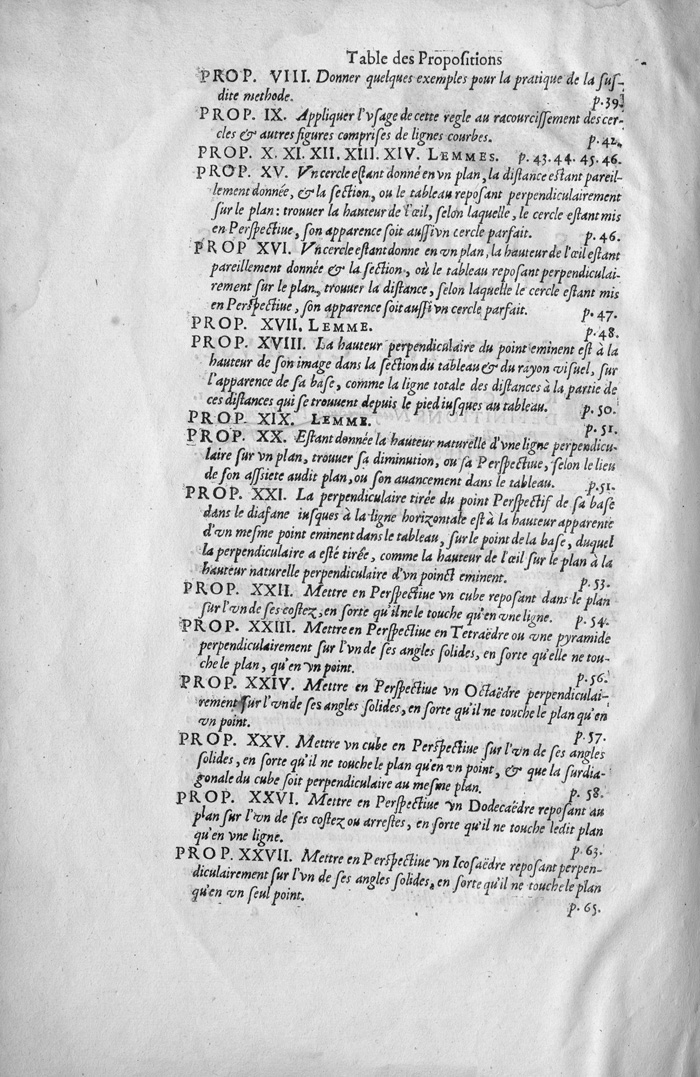 Table des Propoſitions
PROP. VIII. Donner quelques exemples pour la pratique de la ſuſ-
dite methode. p. 39.
PROP. IX. Appliquer l'vſage de cette regle au racourciſſement des cer-
cles & autres figures compriſes de lignes courbes. p. 42.
PROP. X. XI. XII. XIII. XIV. LEMMES. p. 43. 44. 45. 46.
PROP. XV. Vn cercle eſtant donné en vn plan, la diſtance eſtant pareil-
lement donnée, & la ſection, ou le tableau repoſant perpendiculairement
ſur le plan: trouuer la hauteur de l'œil, ſelon laquelle, le cercle eſtant mis
en Perſpectiue, ſon apparence ſoit auſſi vn cercle parfait. p. 46.
PROP XVI. Vn cercle eſtant donne en vn plan, la hauteur de l'œil eſtant
pareillement donnée & la ſection, où le tableau repoſant perpendiculai-
rement ſur le plan, trouuer la diſtance, ſelon laquelle le cercle eſtant mis
en Perſpectiue, ſon apparence ſoit auſſi vn cercle parfait. p. 47.
PROP. XVII. LEMME. p. 48.
PROP. XVIII. La hauteur perpendiculaire du point eminent eſt à la
hauteur de ſon image dans la ſection du tableau & du rayon viſuel, ſur
l'apparence de ſa baſe, comme la ligne totale des diſtances à la partie de
ces diſtances qui ſe trouuent depuis le pied iuſques au tableau. p. 50.
PROP. XIX. LEMME. p. 51.
PROP. XX. Eſtant donnée la hauteur naturelle d'vne ligne perpendicu-
laire ſur vn plan, trouuer ſa diminution, ou ſa Perſpectiue, ſelon le lieu
de ſon aſſiete audit plan, ou ſon auancement dans le tableau. p. 51.
PROP. XXI. La perpendiculaire tirée du point Perſpectif de ſa baſe
dans le diafane iuſques à la ligne horizontale eſt à la hauteur apparente
d'vn meſme point eminent dans le tableau, ſur le point de la baſe, duquel
la perpendiculaire a eſté tirée, comme la hauteur de l'œil ſur le plan à la
hauteur naturelle perpendiculaire d'vn poinct eminent. p. 53.
PROP. XXII. Mettre en Perſpectiue vn cube repoſant dans le plan
ſur l'vn de ſes coſtez, en ſorte qu'il ne le touche qu'en vne ligne. p. 54.
PROP. XXIII. Mettre en Perſpectiue en Tetraëdre ou vne pyramide
perpendiculairement ſur l'vn de ſes angles ſolides, en ſorte qu'elle ne tou-
che le plan, qu'en vn point. p. 56.
PROP. XXIV. Mettre en Perſpectiue vn Octaëdre perpendiculai-
rement ſur l'vn de ſes angles ſolides, en ſorte qu'il ne touche le plan qu'en
vn point. p. 57.
PROP. XXV. Mettre vn cube en Perſpectiue ſur l'vn de ſes angles
ſolides, en ſorte qu'il ne touche le plan qu'en vn point, & que la ſurdia-
gonale du cube ſoit perpendiculaire au meſme plan. p. 58.
PROP. XXVI. Mettre en Perſpectiue vn Dodecaëdre repoſant au
plan ſur l'vn de ſes coſtez ou arreſtes, en ſorte qu'il ne touche ledit plan
qu'en vne ligne. p. 63.
PROP. XXVII. Mettre en Perſpectiue vn Icoſaëdre repoſant perpen-
diculairement ſur l'vn de ſes angles ſolides, en ſorte qu'il ne touche le plan
qu'en vn ſeul point. p. 65.